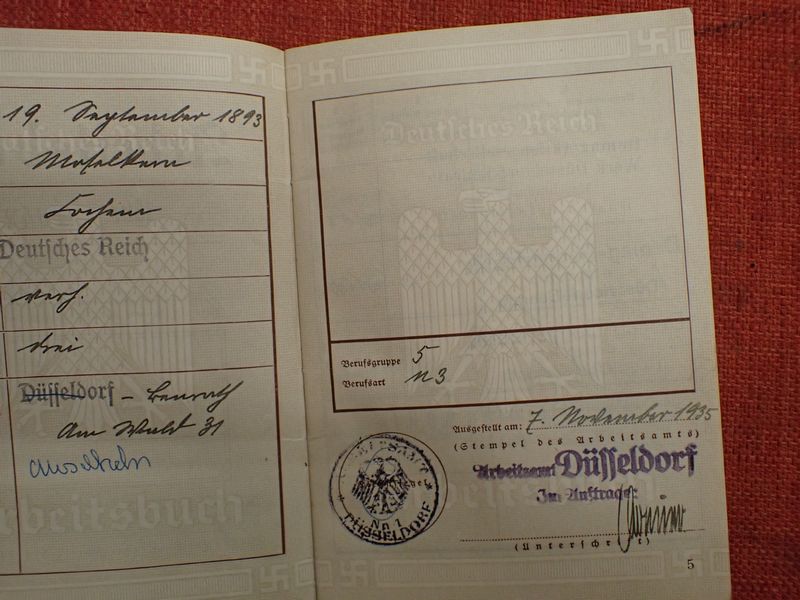 19. September 1893
Moselkern
Cochem
Deutsches Reich
verh.
drei
Düsseldorf - Benrath
Am Wald 31
Arbeitsbuch
Deutsches Reich
Berufsgruppe 5
Berufsart n3
Ausgestellt am: 7. November 1935
(Stempel des Arbeitsamts)
Arbeitsamt Düsseldorf
Im Auftrage:
ARBEITSAMT
Nr. 1
DÜSSELDORF
(Unterschrift)
5